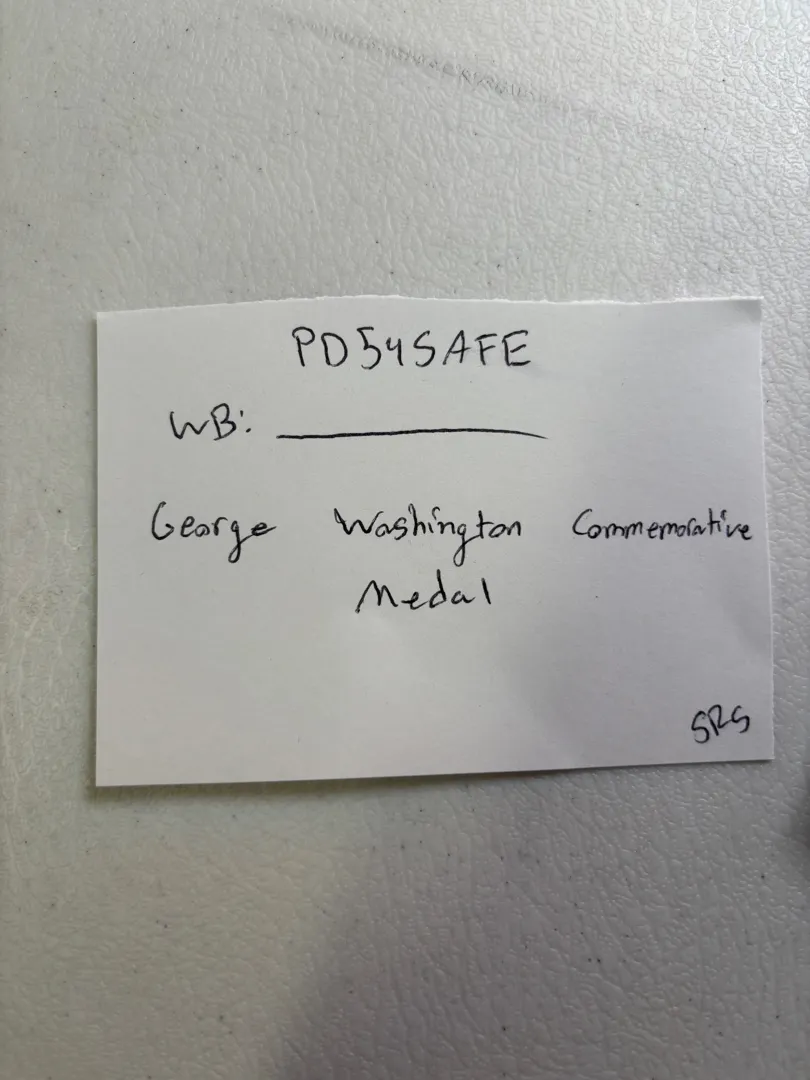 PD54SAFE
WB: ____________
George Washington Commemorative
Medal
SRS